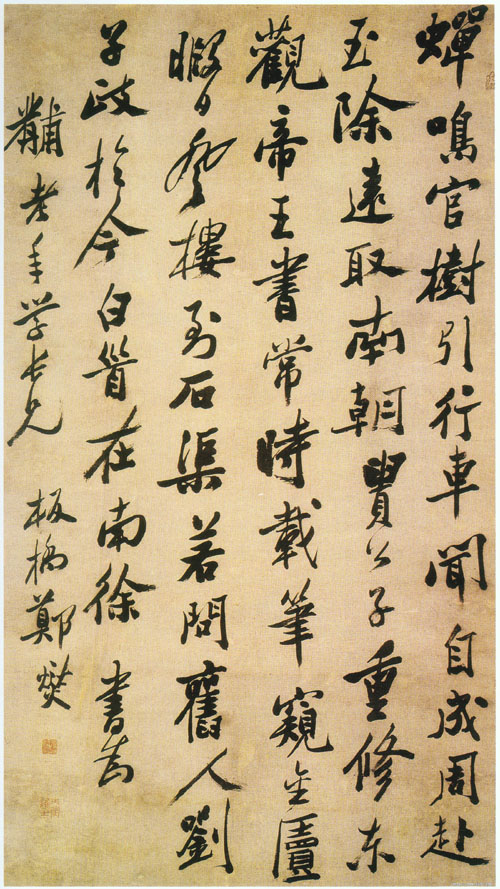 蟬鳴官樹引行車聞自成周赴
玉除遠取南朝貴公子重修东
觀帝王書常時載筆窺金匱
暇日登樓到石渠若問舊人劉
子政於今白首在南徐 書
黼老年学长兄 板橋鄭燮